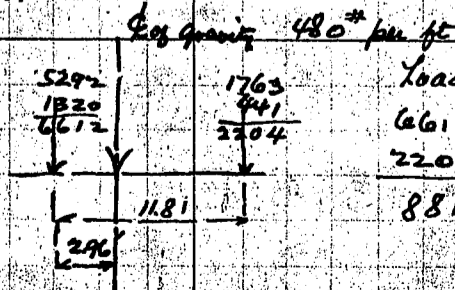 ℄ of gravity 480# per ft
5292
1320
6612
1763
441
2204
Load
661
220
881
11.81
2.96'